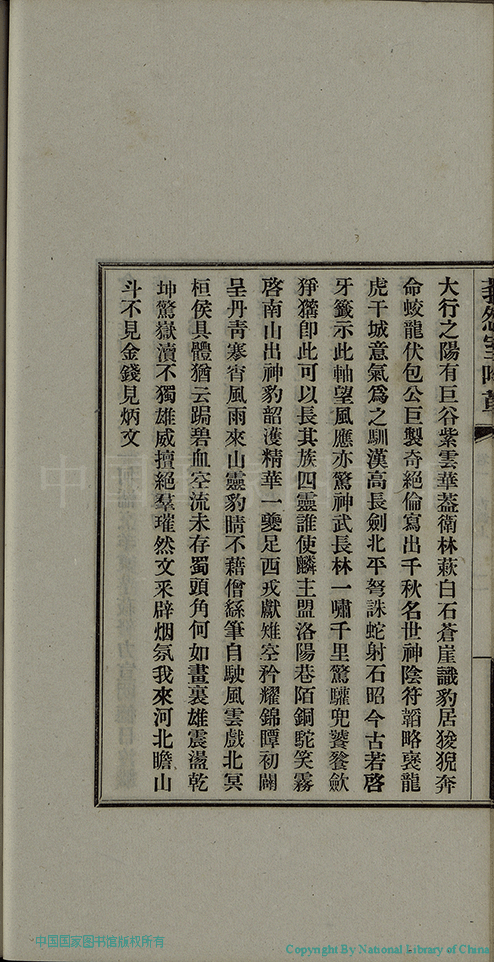 大行之陽有巨谷紫雲華葢衛林萩白石蒼崖識豹居狻猊奔
命蛟龍伏包公巨製奇絕倫寫出千秋名世神陰符韜略裒龍
虎干城意氣爲之馴漢高長劍北平弩誅蛇射石昭今古若啓
牙籤示此軸望風應亦驚神武長林一嘯千里驚驩兜饕餮歛
猙獰卽此可以長其族四靈誰使麟主盟洛陽巷陌銅駝笑霧
啓南山出神豹韶濩精華一夔足西戎獻雉空矜耀錦贉初闢
呈丹青寒宵風雨來山靈豹睛不藉僧繇筆自駛風雲戲北冥
桓侯具體猶云跼碧血空流未存蜀頭角何如畫裏雄震盪乾
坤驚嶽瀆不獨雄威擅絕羣璀然文釆辟烟氛我來河北瞻山
斗不見金錢見炳文
中国国家图书馆版权所有
Copyright By National Library of China